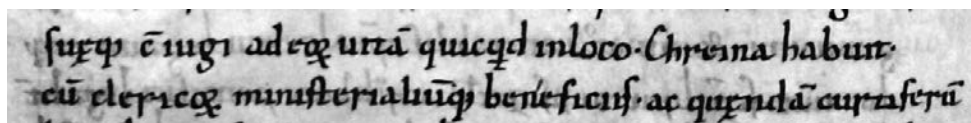 suęq; c̄iugi ad eoꝝ uitā quicq̣d inloco· Chrema habuit·
cū clericoꝝ ministerialiūq; beneficiis· ac quęndā curtiferū